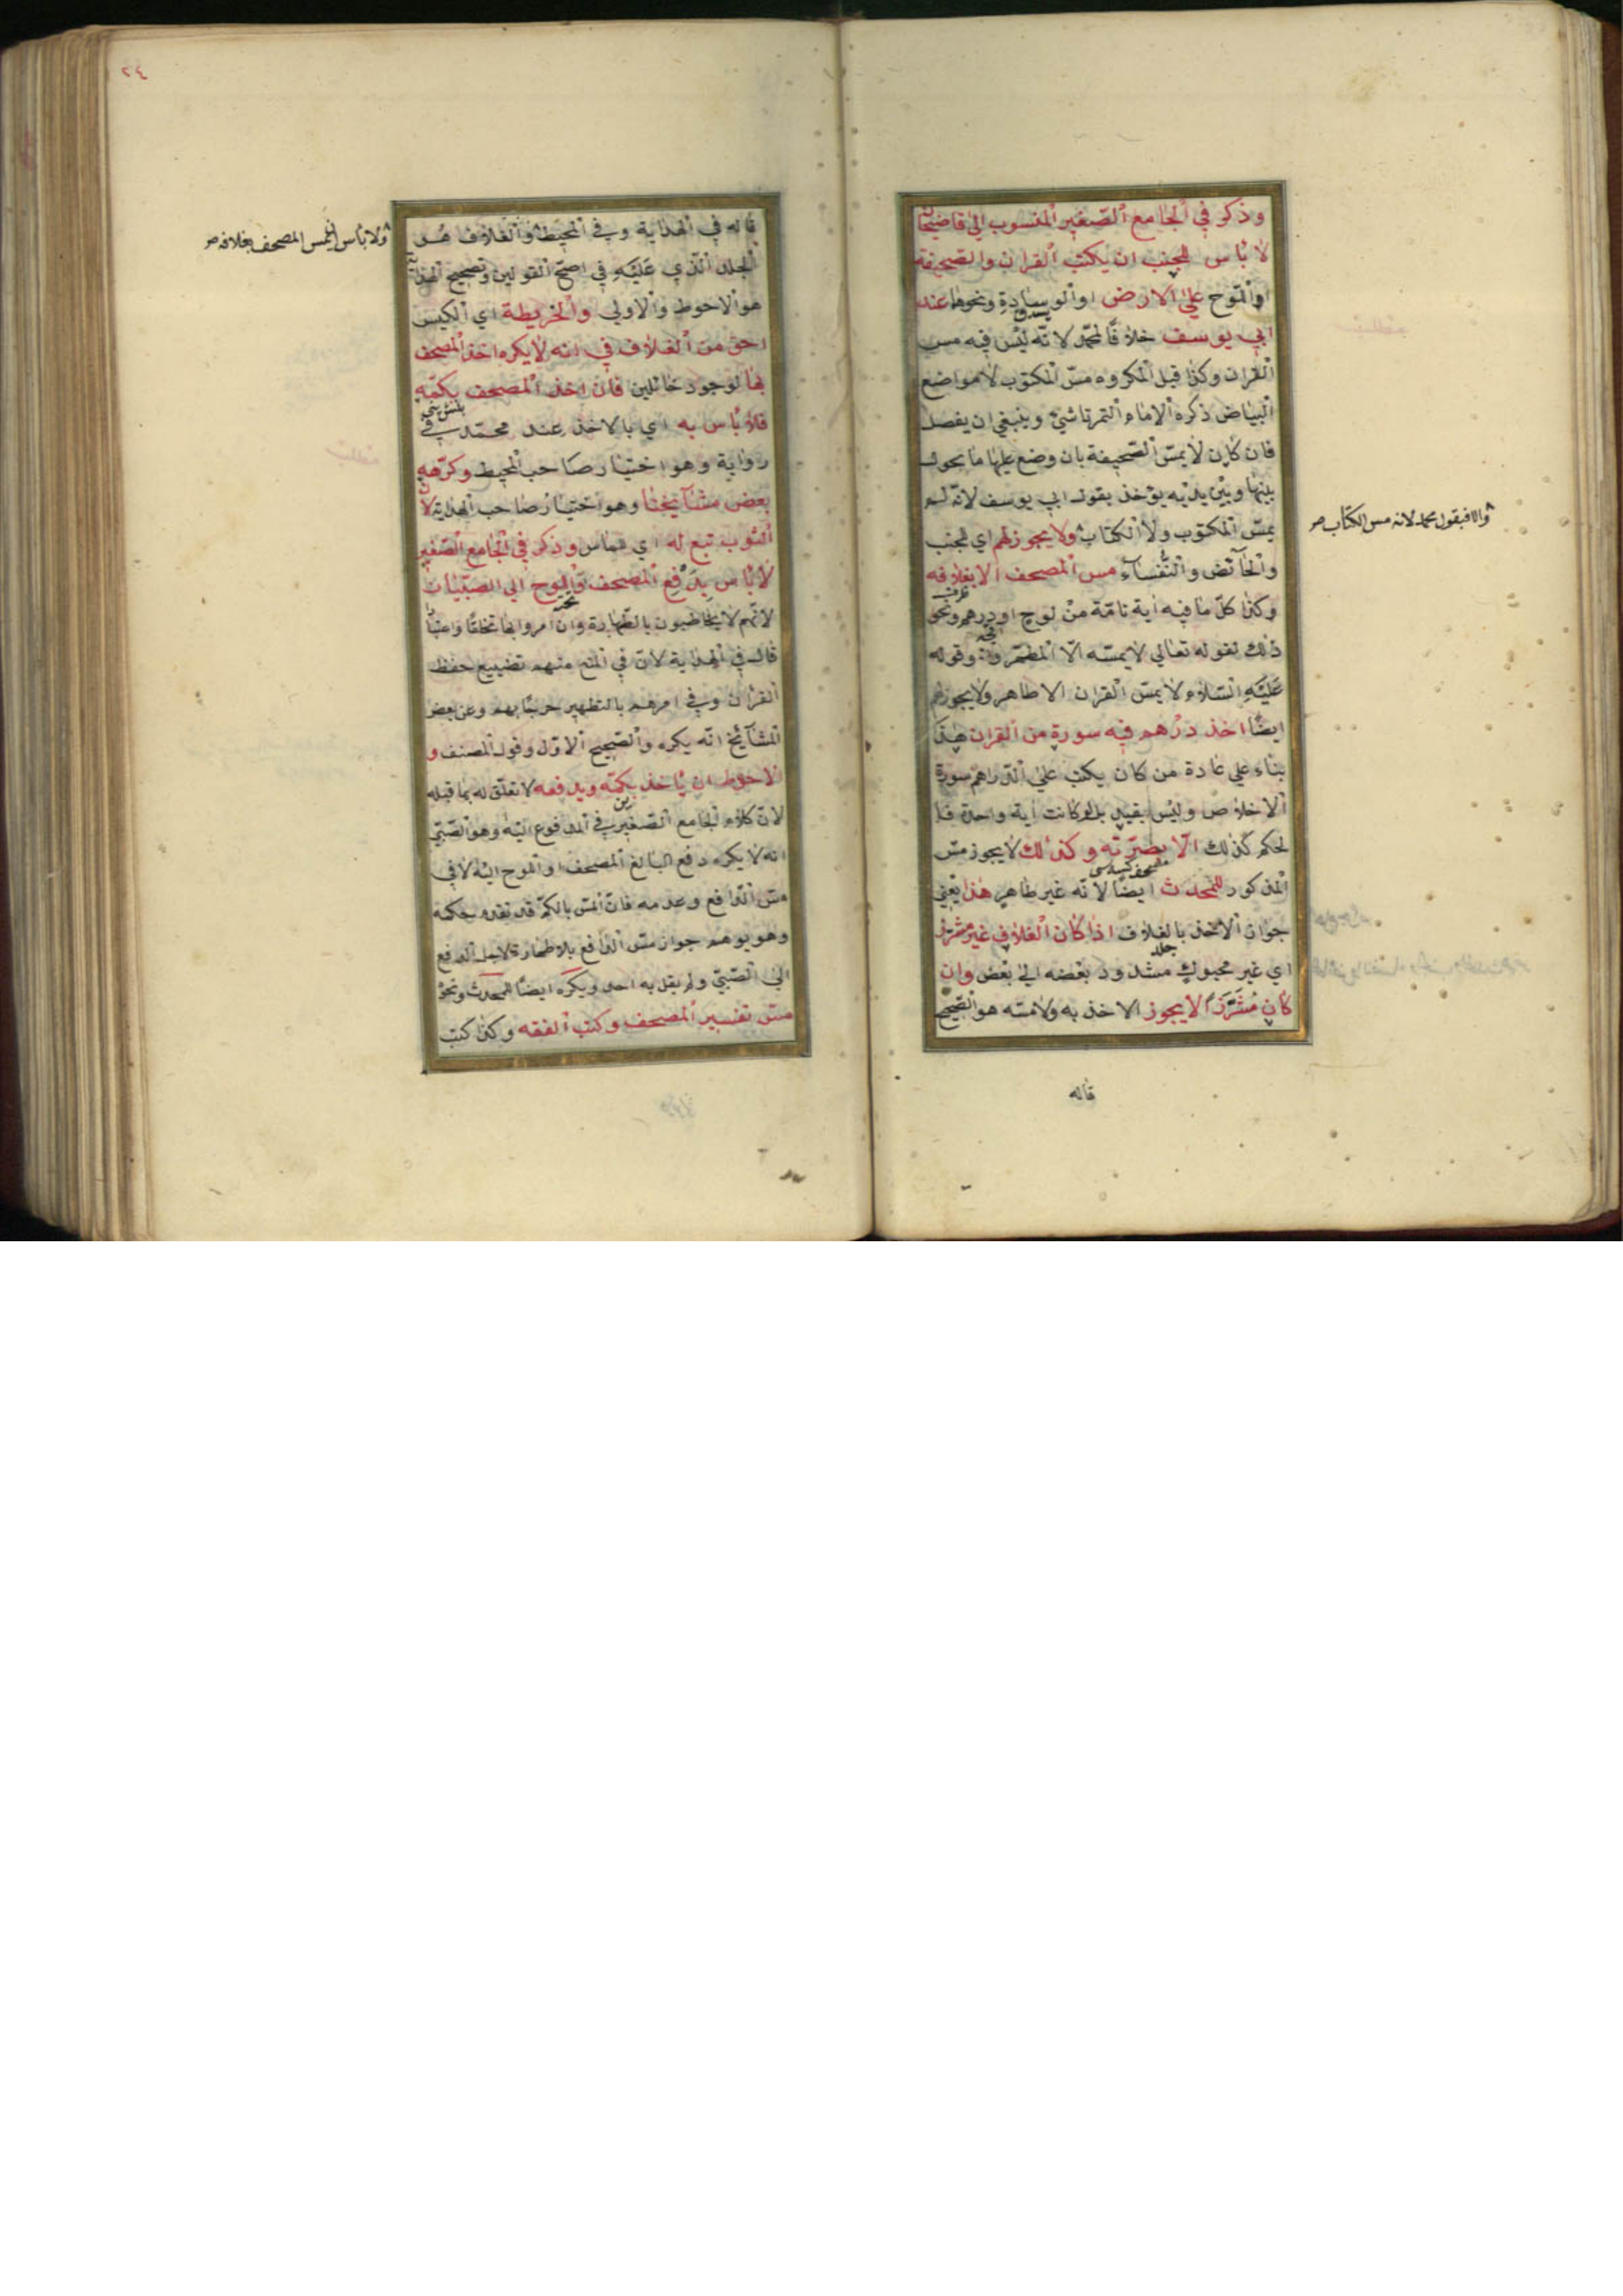 وذكر في الجامع الصغير المنسوب الي قاضيخان
لا بأس للجنب ان يكتب القران والصحيفة
او اللوح علي الارض او الوسادة ونحوها عند
ابي يوسف خلافا لمحمد لانه ليس فيه مس
القران وكذا قيل المكروه مس المكتوب لا مواضع
البياض ذكره الامام التمرتاشي وينبغي ان يفصل
فان كان لا يمس الصحيفة بان وضع عليها ما يحول
بينها وبين يديه يؤخذ بقول ابي يوسف لانه لم
يمس المكتوب ولا الكتاب ولا يجوز لهم اي للجنب
والحائض والنفساء مس المصحف الا بغلافه
وكذا كل ما فيه اية تامة من لوح او درهم ونحو
ذلك لقوله تعالي لا يمسه الا المطهرون وقوله
عليه السلام لا يمس القران الا طاهر ولا يجوز لهم
ايضا اخذ درهم فيه سورة من القران هذا
بناء علي عادة من كان يكتب علي الدراهم سورة
الاخلاص وليس بقيد بل لو كانت اية واحدة فا
لحكم كذلك الا بصرته وكذلك لا يجوز مس
المذكور للمحدث ايضا لانه غير طاهر هذا يعني
جواز الاخذ بالغلاف اذا كان الغلاف غير مشرز
اي غير محبوك مشدود بعضه الي بعض وان
كان مشرزا لا يجوز الاخذ به ولا مسه هو الصحيح
قاله
والا فبقول محمد لانه مس الكتاب صح
٢٤
قاله في الهداية وفي المحيط والغلاف هو
الجلد الذي عليه في اصح القولين وتصحيح الهداية
هو الاحوط والاولي والخريطة اي الكيس
احق من الغلاف في انه لا يكره اخذ المصحف
بها لوجود حائلين فان اخذ المصحف بكمه
فلا بأس به اي بالاخذ عند محمد في
رواية وهو اختيار صاحب المحيط وكرهه
بعض مشائخنا وهو اختيار صاحب الهداية لان
الثوب تبع له اي للماس وذكر في الجامع الصغير
لا بأس بدفع المصحف واللوح الي الصبيان
لانهم لا يخاطبون بالطهارة وان امروا بها تخلقا واعتيادا
قال في الهداية لان في المنع منهم تضييع حفظ
القران وفي امرهم بالتطهير حرجا بهم وعن بعض
المشائخ انه يكره والصحيح الاول وقول المصنف و
الاحوط ان يأخذ بكمه ويدفعه لا تعلق له بما قبله
لان كلام الجامع الصغير في المدفوع اليه وهو الصبي
انه لا يكره دفع البالغ المصحف او اللوح اليه لا في
مس الدافع وعدمه فان المس بالكم قد تقدم حكمه
وهو يوهم جواز مس الدافع بلا طهارة لاجل الدفع
الي الصبي ولم يقل به احد ويكره ايضا للمحدث ونحوه
مس تفسير المصحف وكتب الفقه وكذا كتب
ولا بأس ان يمس المصحف بغلافه صح